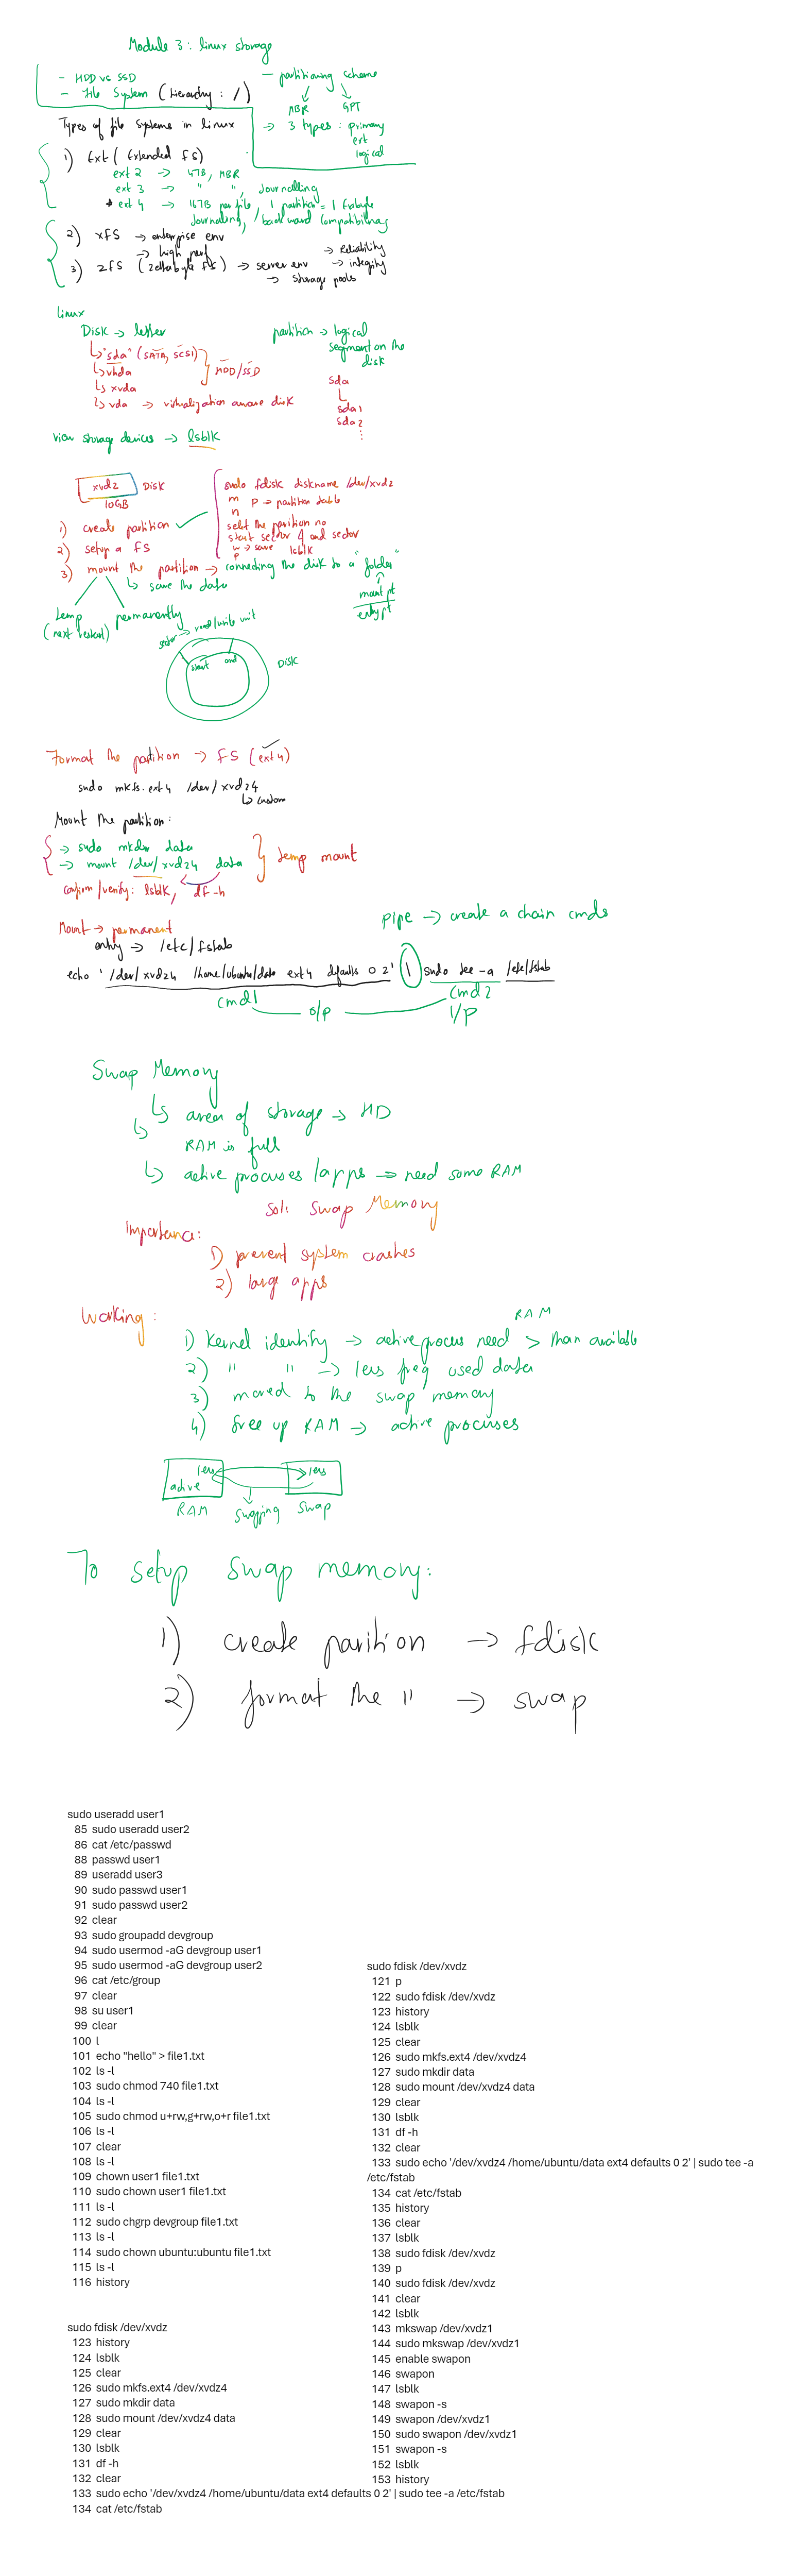 Module 3: linux storage
- HDD vs SSD
- File System (Hierarchy : /)
- partitioning scheme
MBR GPT
→ 3 types : primary
ext
logical
Types of file systems in linux
1) Ext (Extended FS)
ext 2 → 4TB, MBR
ext 3 → " ", Journalling
* ext 4 → 16TB per file, 1 partition = 1 Exabyte
Journalling, backward compatibility
2) XFS → enterprise env
→ high perf
3) ZFS (Zettabyte FS) → server env
→ Reliability
→ integrity
→ storage pools
linux
Disk → letter
↳ "sda" (SATA, SCSI)
↳ vhda
↳ xvda
HDD/SSD
↳ vda → virtualization aware disk
partition → logical
segment on the
disk
sda
sda1
sda2
view storage devices → lsblk
xvdz Disk
10GB
1) create partition
2) setup a FS
3) mount the partition → connecting the disk to a "folder"
↳ save the data
mount pt
entry pt
sudo fdisk diskname /dev/xvdz
m p → partition table
n
selt the parition no
start sector & end sector
w → save lsblk
p
temp permanently
(next restart)
sector → read/write unit
start end
Disk
Format the partition → FS (ext4)
sudo mkfs.ext4 /dev/xvdz4
↳ custom
Mount the partition:
→ sudo mkdir data
→ mount /dev/xvdz4 data
temp mount
confirm/verify: lsblk, df -h
Mount → permanent
entry → /etc/fstab
pipe → create a chain cmds
echo '/dev/xvdz4 /home/ubuntu/data ext4 defaults 0 2' | sudo tee -a /etc/fstab
cmd1 cmd2
o/p I/P
Swap Memory
↳ area of storage → HD
↳ RAM is full
↳ active processes /apps → need some RAM
sol: Swap Memory
Importance:
1) prevent system crashes
2) large apps
Working:
RAM
1) Kernel identify → active process need > than available
2) " " → less freq used data
3) moved to the swap memory
4) free up RAM → active processes
less less
active
RAM swapping swap
To setup swap memory:
1) create parition → fdisk
2) format the " → swap
sudo useradd user1
85 sudo useradd user2
86 cat /etc/passwd
88 passwd user1
89 useradd user3
90 sudo passwd user1
91 sudo passwd user2
92 clear
93 sudo groupadd devgroup
94 sudo usermod -aG devgroup user1
95 sudo usermod -aG devgroup user2
96 cat /etc/group
97 clear
98 su user1
99 clear
100 l
101 echo "hello" > file1.txt
102 ls -l
103 sudo chmod 740 file1.txt
104 ls -l
105 sudo chmod u+rw,g+rw,o+r file1.txt
106 ls -l
107 clear
108 ls -l
109 chown user1 file1.txt
110 sudo chown user1 file1.txt
111 ls -l
112 sudo chgrp devgroup file1.txt
113 ls -l
114 sudo chown ubuntu:ubuntu file1.txt
115 ls -l
116 history
sudo fdisk /dev/xvdz
123 history
124 lsblk
125 clear
126 sudo mkfs.ext4 /dev/xvdz4
127 sudo mkdir data
128 sudo mount /dev/xvdz4 data
129 clear
130 lsblk
131 df -h
132 clear
133 sudo echo '/dev/xvdz4 /home/ubuntu/data ext4 defaults 0 2' | sudo tee -a /etc/fstab
134 cat /etc/fstab
sudo fdisk /dev/xvdz
121 p
122 sudo fdisk /dev/xvdz
123 history
124 lsblk
125 clear
126 sudo mkfs.ext4 /dev/xvdz4
127 sudo mkdir data
128 sudo mount /dev/xvdz4 data
129 clear
130 lsblk
131 df -h
132 clear
133 sudo echo '/dev/xvdz4 /home/ubuntu/data ext4 defaults 0 2' | sudo tee -a
/etc/fstab
134 cat /etc/fstab
135 history
136 clear
137 lsblk
138 sudo fdisk /dev/xvdz
139 p
140 sudo fdisk /dev/xvdz
141 clear
142 lsblk
143 mkswap /dev/xvdz1
144 sudo mkswap /dev/xvdz1
145 enable swapon
146 swapon
147 lsblk
148 swapon -s
149 swapon /dev/xvdz1
150 sudo swapon /dev/xvdz1
151 swapon -s
152 lsblk
153 history